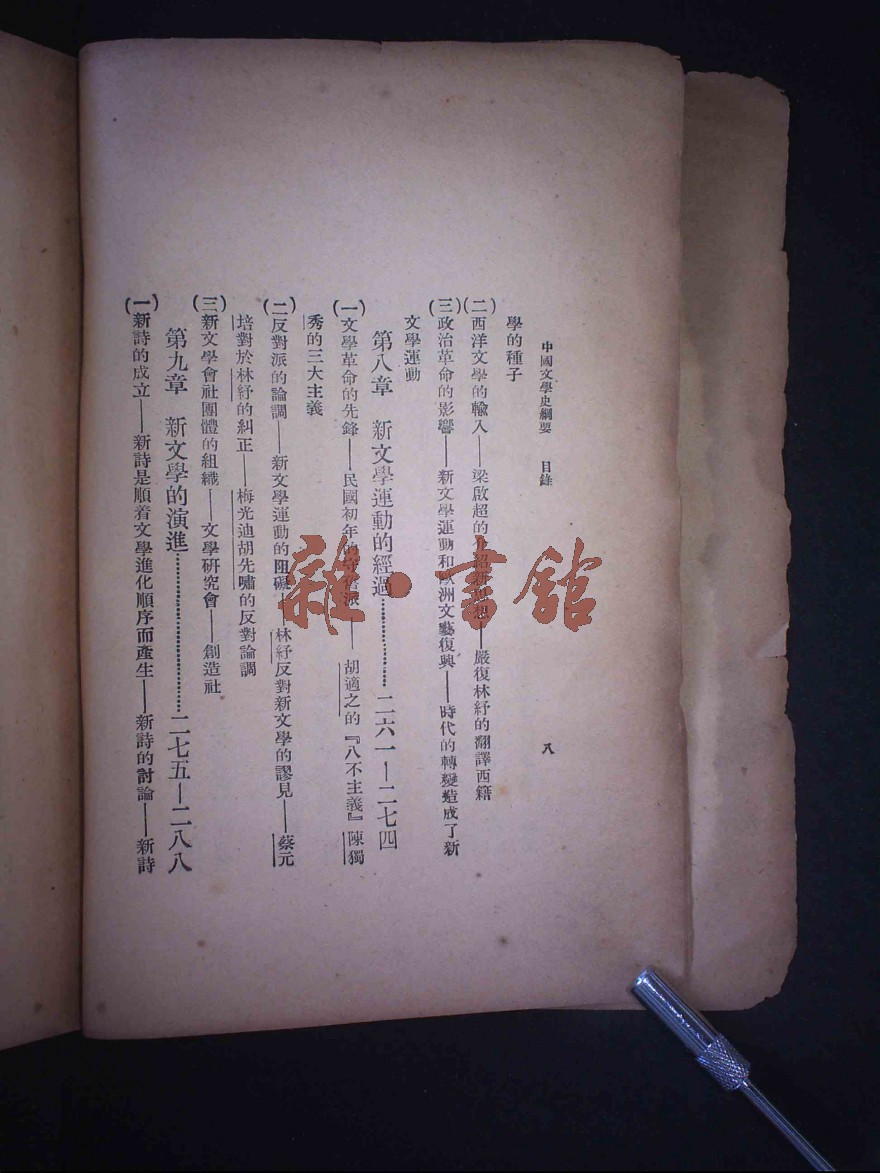 中國文學史綱要　目錄　八
學的種子
(二)西洋文學的輸入——梁啟超的介紹新思想——嚴復林紓的翻譯西籍
(三)政治革命的影響——新文學運動和歐洲文藝復興——時代的轉變造成了新
文學運動
第八章　新文學運動的經過…………二六一—二七四
(一)文學革命的先鋒——民國初年的守舊派——胡適之的『八不主義』陳獨
秀的三大主義
(二)反對派的論調——新文學運動的阻礙——林紓反對新文學的謬見——蔡元
培對於林紓的糾正——梅光迪胡先嘯的反對論調
(三)新文學會社團體的組織——文學研究會——創造社
第九章　新文學的演進…………………二七五—二八八
(一)新詩的成立——新詩是順着文學進化順序而產生——新詩的討論——新詩
雜·書館